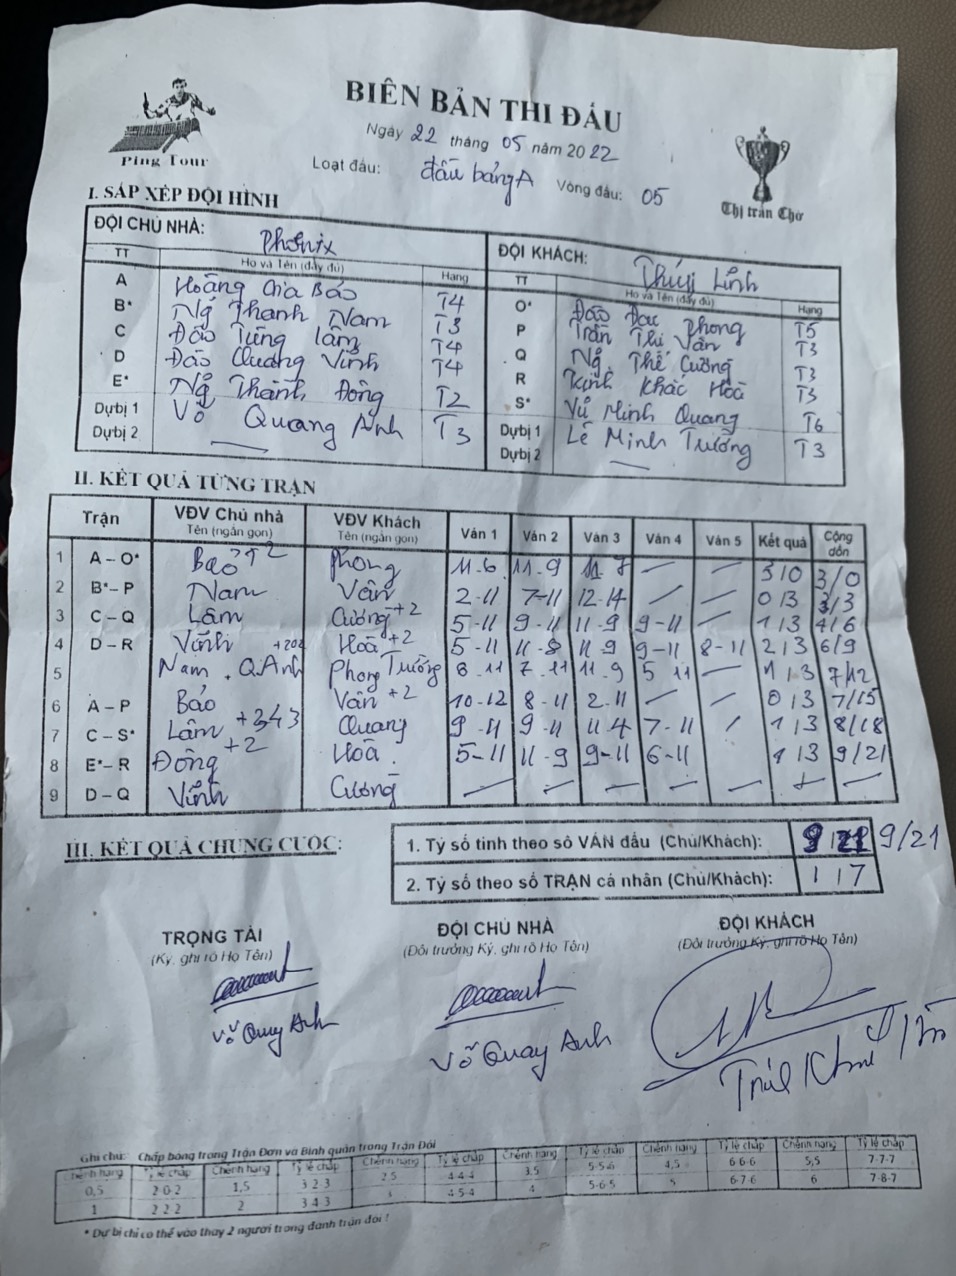 BIÊN BẢN THI ĐẤU
Ping Tour
Ngày 22 tháng 05 năm 2022
Loạt đấu: đấu bảng A Vòng đấu: 05
Thị trấn Chờ
I. SẮP XẾP ĐỘI HÌNH
ĐỘI CHỦ NHÀ: Phonix ĐỘI KHÁCH: Thúy Linh
TT Họ và Tên (đầy đủ) Hạng TT Họ và Tên (đầy đủ) Hạng
A Hoàng Gia Bảo T4 O* Đào Đắc Phong T5
B* Ng Thanh Nam T3 P Trần Thị Vân T3
C Đào Tùng Lâm T4 Q Ng Thế Cường T3
D Đào Quang Vinh T4 R Kinh Khắc Hoà T3
E* Ng Thành Đông T2 S* Vũ Minh Quang T6
Dự bị 1 Võ Quang Anh T3 Dự bị 1 Lê Minh Trường T3
Dự bị 2 — Dự bị 2 —
II. KẾT QUẢ TỪNG TRẬN
Trận VĐV Chủ nhà Tên (ngắn gọn) VĐV Khách Tên (ngắn gọn) Ván 1 Ván 2 Ván 3 Ván 4 Ván 5 Kết quả Cộng dồn
1 A – O* Bảo +2 Phong 11-6 11-9 11-8 — — 3/0 3/0
2 B* – P Nam Vân 2-11 7-11 12-14 — — 0/3 3/3
3 C – Q Lâm Cường +2 5-11 9-11 11-9 9-11 — 1/3 4/6
4 D – R Vinh +202 Hoà +2 5-11 11-8 11-9 9-11 8-11 2/3 6/9
5 Nam . Q.Anh Phong Trường 8-11 7-11 11-9 5-11 — 1/3 7/12
6 A – P Bảo Vân +2 10-12 8-11 2-11 — — 0/3 7/15
7 C – S* Lâm +343 Quang 9-11 9-11 11-4 7-11 — 1/3 8/18
8 E* – R Đông +2 Hoà 5-11 11-9 9-11 6-11 1/3 9/21
9 D – Q Vinh Cường — — — — — — —
III. KẾT QUẢ CHUNG CUỘC:
1. Tỷ số tính theo số VÁN đấu (Chủ/Khách): 9/21 9/21
2. Tỷ số theo số TRẬN cá nhân (Chủ/Khách): 1/7
TRỌNG TÀI ĐỘI CHỦ NHÀ ĐỘI KHÁCH
(Ký, ghi rõ Họ Tên) (Đội trưởng Ký, ghi rõ Họ Tên) (Đội trưởng Ký, ghi rõ Họ Tên)
Võ Quang Anh Võ Quang Anh
Ghi chú: Chấp bóng trong Trận Đơn và Bình quân trong Trận Đôi
Chênh hạng Tỷ lệ chấp Chênh hạng Tỷ lệ chấp Chênh hạng Tỷ lệ chấp Chênh hạng Tỷ lệ chấp Chênh hạng Tỷ lệ chấp Chênh hạng Tỷ lệ chấp
0,5 2-0-2 1,5 3-2-3 2,5 4-4-4 3,5 5-5-6 4,5 6-6-6 5,5 7-7-7
1 2-2-2 2 3-4-3 4-5-4 4 5-6-5 5 6-7-6 6 7-8-7
* Dự bị chỉ có thể vào thay 2 người trong đánh trận đôi !